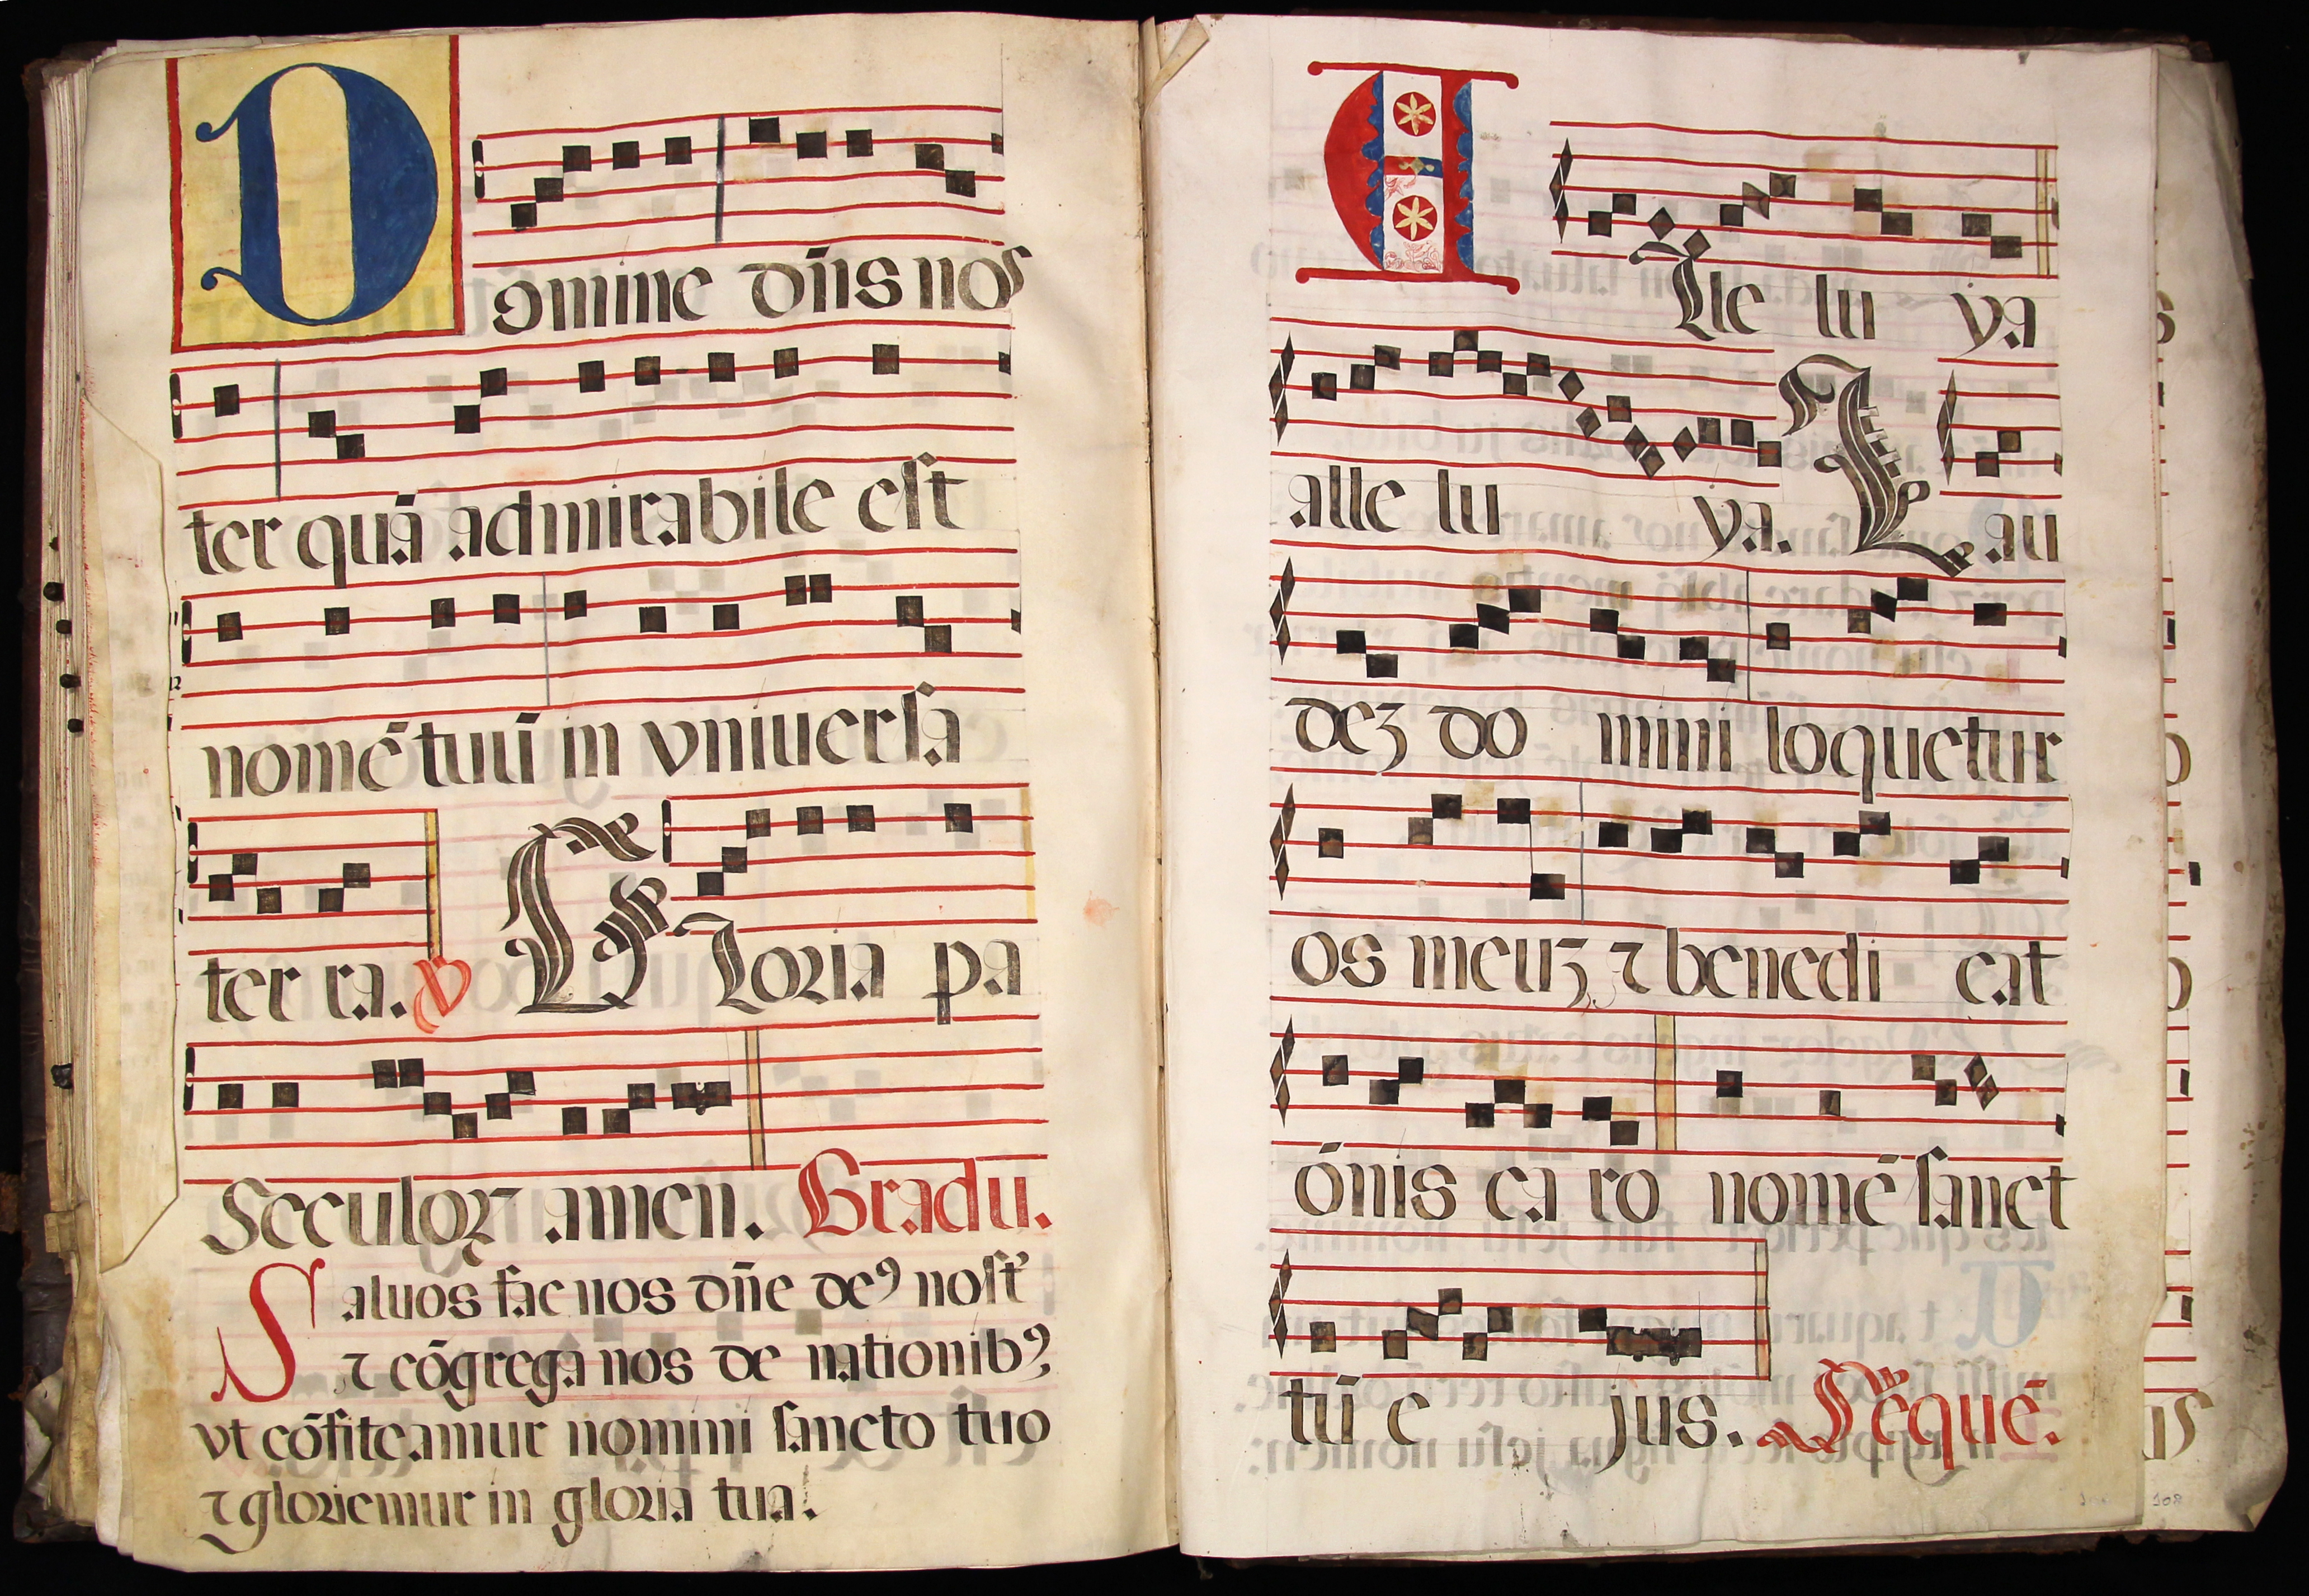 Domine dn̄s nos
ter quā admirabile est
nomē tuū in vniuersa
ter ra. V Gloria pa
Seculoꝝ amen. Gradu.
Saluos fac nos dn̄e deꝰ nost᷑
⁊ cōgrega nos de nationibꝰ
vt cōfiteamur nomini sancto tuo
⁊ gloriemur in gloria tua.
Alle lu ya
alle lu ya. Lau
deꝫ do mini loquetur
os meuꝫ ⁊ benedi cat
ōnis ca ro nomē sanct
tū e jus. Seq̄ue.
108